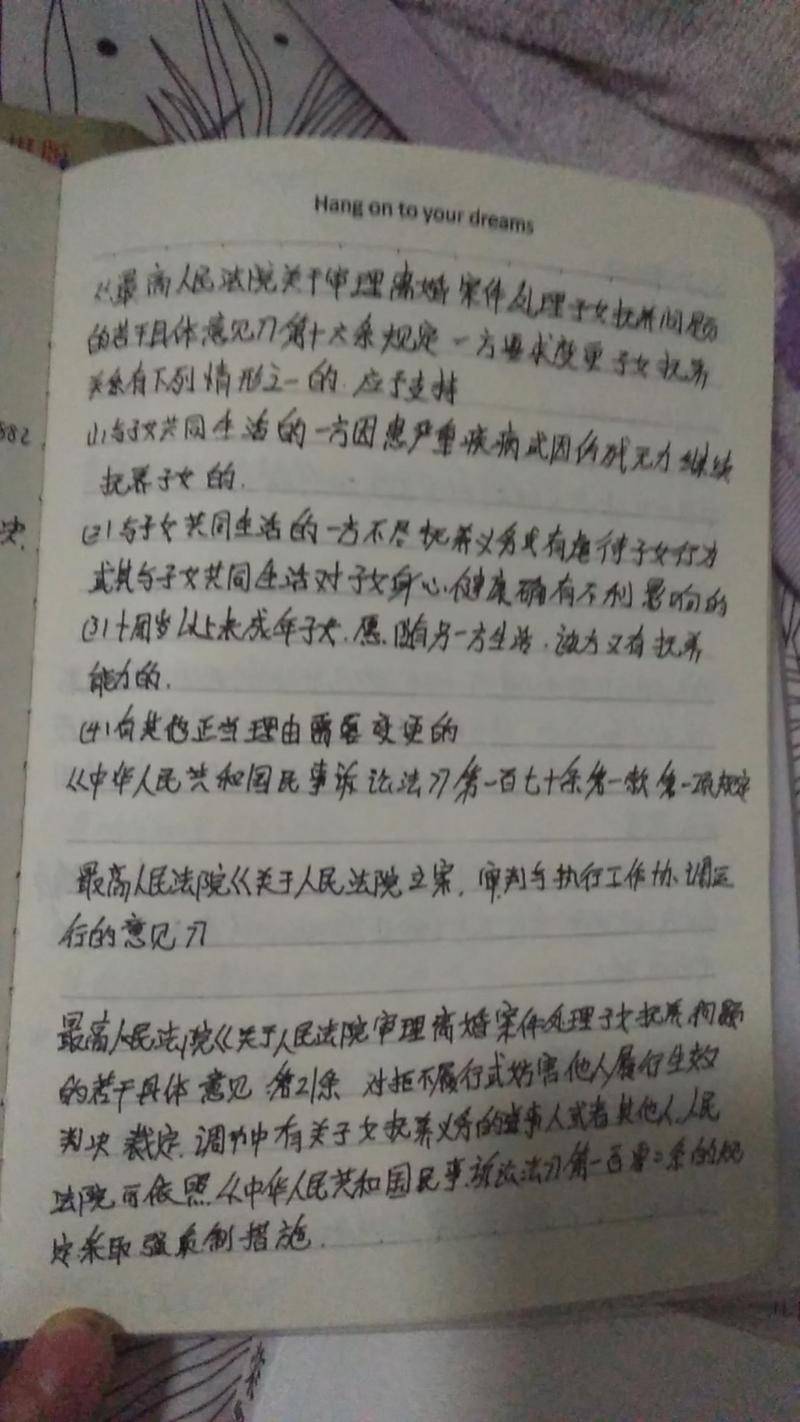 出版
Hang on to your dreams
《最高人民法院关于审理离婚案件处理子女抚养问题
的若干具体意见》第十六条规定一方要求变更子女抚养
关系有下列情形之一的.应予支持
(1)与子女共同生活的一方因患严重疾病或因伤残无力继续
抚养子女的.
(2)与子女共同生活的一方不尽抚养义务或有虐待子女行为
或其与子女共同生活对子女身心健康确有不利影响的
(3)十周岁以上未成年子女.愿随另一方生活.该方又有抚养
能力的.
(4)有其他正当理由需要变更的
《中华人民共和国民事诉讼法》第一百七十条第一款第一项规定
最高人民法院《关于人民法院立案.审判与执行工作协调运
行的意见》
最高人民法院《关于人民法院审理离婚案件处理子女抚养问题
的若干具体意见 第21条 对拒不履行或妨害他人履行生效
判决 裁定.调解中有关子女抚养义务的当事人或者其他人.人民
法院可依照《中华人民共和国民事诉讼法》第一百零二条的规
定采取强制措施.
882
决.